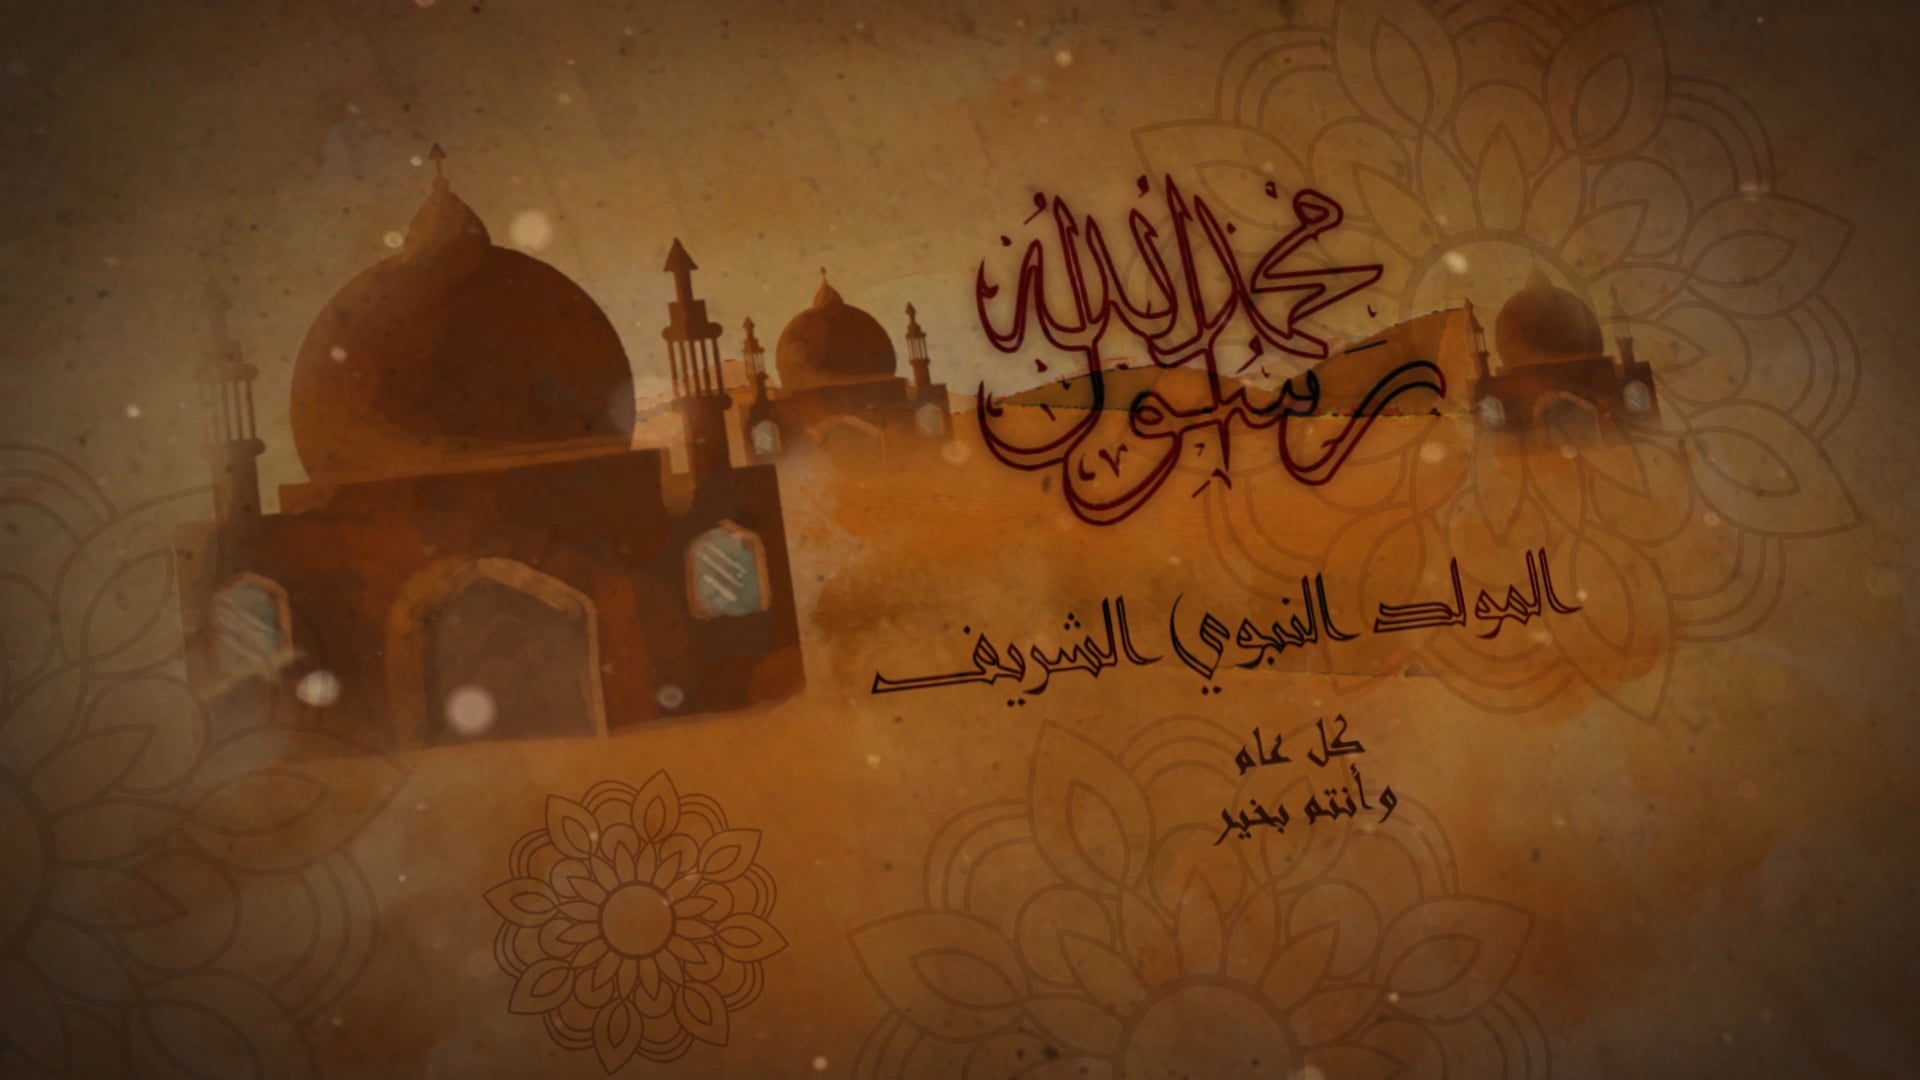 محمد
رَسُول اللَّه
المولد النبوي الشريف
كل عام
وأنتم بخير